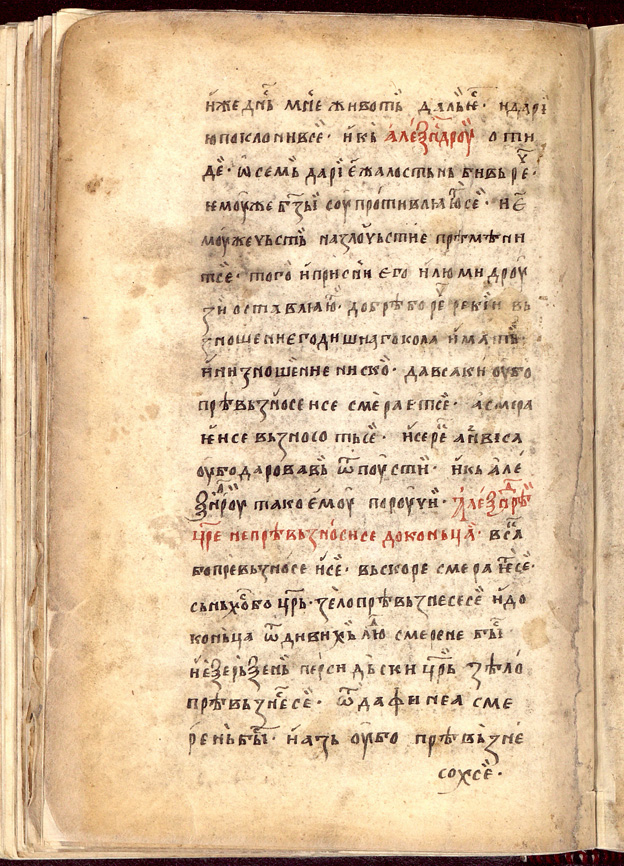 иже днⷭ҇ь мнѣе животь дальѥ · и дарї
ю поклонивсе · и кь алеѯⷩ҇дроу ѡ ти
де · ѡ семь дарїе жалостьнь бивь ре ·
ѥмоуже бз҃ы соупротивлꙗютсе · и е
моуже чьсть на злочьстие прѣмѣни
тсе · того и приснїи его и люми дроу
зи оставлꙗю · добрѣ бо рече рекїи вь
зношениѥ годищнаго кола имать
и низношение ниско · да всаки оубо
прѣвьзносеи се смераѥтсе · а смера
ѥи се вьзносѡтьсе · и сереⷨ анвїса
оубо даровавь ѿпоусти · и кь але
ѯⷩ҇дроу тако ѥмоу пороучи · алеѯⷩ҇дре
цр҃е не прѣвьзноси се до коньца · всꙗ
бо превьзносеи се · вьскоре смераѥтсе ·
сьньхоⷭ бо цр҃ь · зело прѣвьзнесесе и до
коньца ѿ дивихь лю смерене быⷭ
и езерьѯень персидьски цр҃ь зѣло
прѣвьзнесе · ѿ да афинеа сме
рень быⷭ · и азь оубо прѣвьзне
сохсе ·